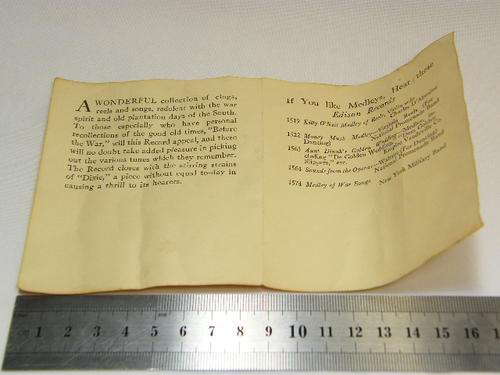 A WONDERFUL collection of clogs,
reels and songs, redolent with the war
spirit and old plantation days of the South.
To those especially who have personal
recollections of the good old times, "Before
the War," will this Record appeal, and there
will no doubt take added pleasure in picking
out the various tunes which they remember.
The Record closes with the stirring strains
of "Dixie," a piece without equal to-day in
causing a thrill to its hearers.
If You like Medleys, Hear these
Edison Records
1519 Kitty O'Neil Medley of Reels, Violin
1522 Money Musk Medley
Dancing)
1565 Aunt Dinah's Golden Wedding
cluding "The Golden Wedding,"
Slippers," etc.
1564 Sounds from the Operas—Waltzes (For Dancing)
1574 Medley of War Songs New York Military Band
1 2 3 4 5 6 7 8 9 10 11 12 13 14 15 16